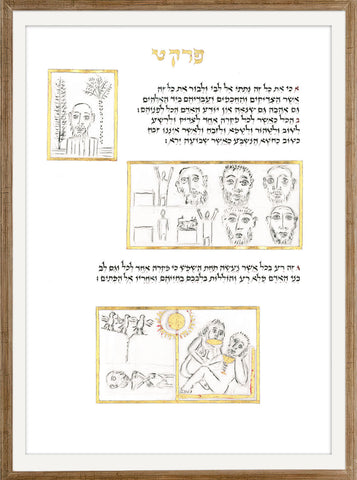 פרק ט
א כי את כל זה נתתי אל לבי ולבור את כל זה
אשר הצדיקים והחכמים ועבדיהם ביד האלהים
גם אהבה גם שנאה אין יודע האדם הכל לפניהם :
ב הכל כאשר לכל מקרה אחד לצדיק ולרשע
לטוב ולטהור ולטמא ולזבח ולאשר איננו זבח
כטוב כחטא הנשבע כאשר שבועה ירא :
ג זה רע בכל אשר נעשה תחת השמש כי מקרה אחד לכל וגם לב
בני האדם מלא רע והוללות בלבבם בחייהם ואחריו אל המתים :